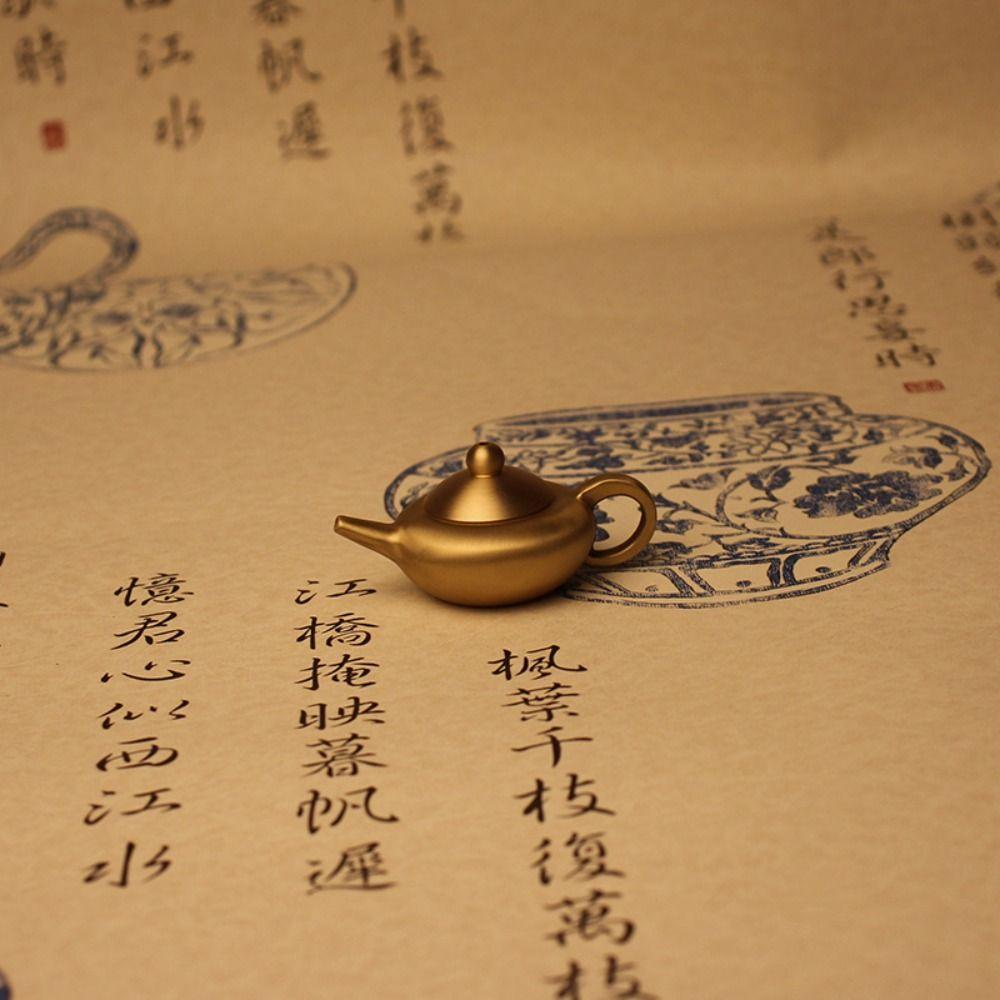 枝復萬
帆遲
江水
時
郎行思時
楓葉千枝復萬枝
江橋掩映暮帆遲
憶君心似西江水